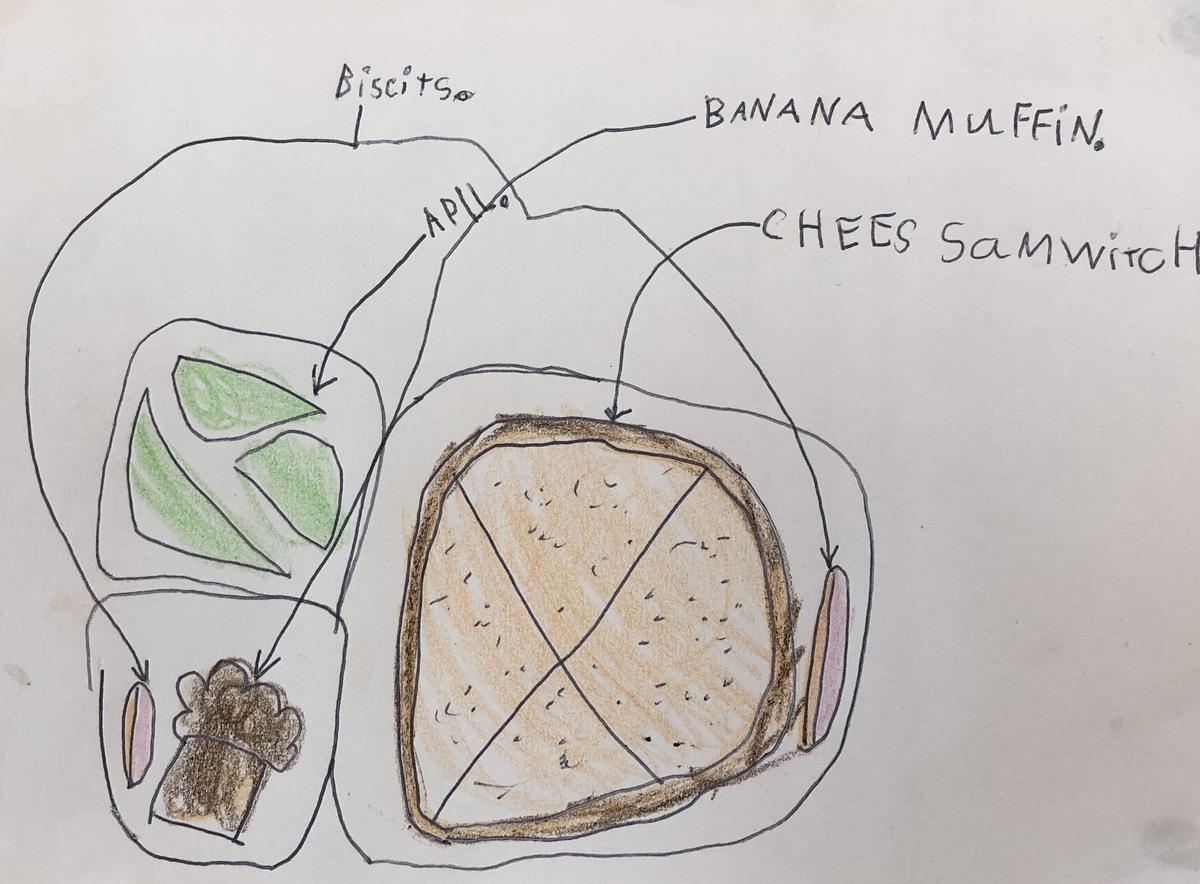 Biscits.
BANANA MUFFiN.
APLL.
CHEES SaMWiTCH